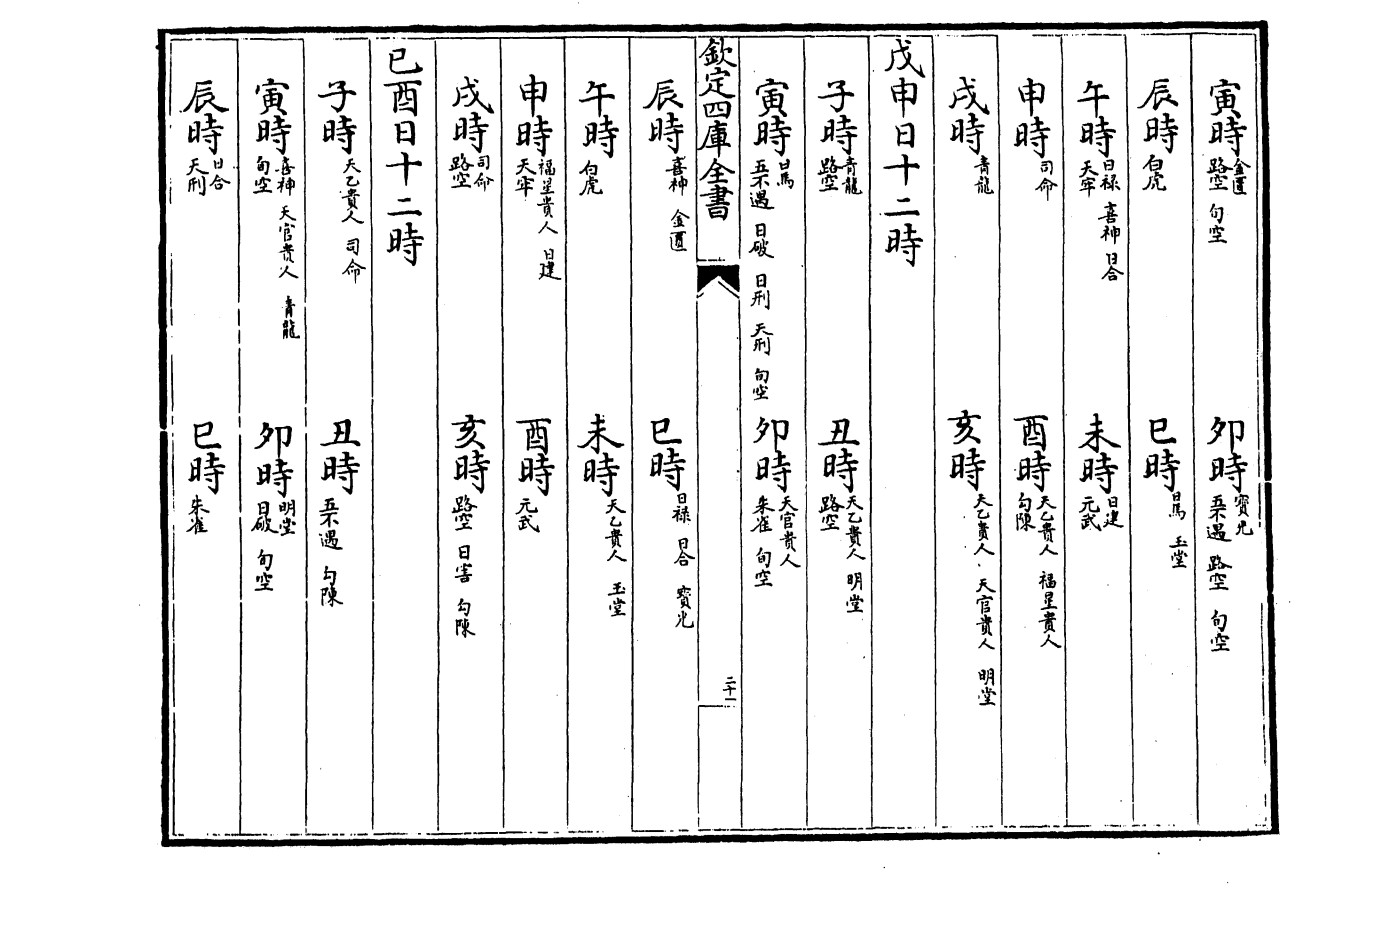 寅時金匱路空 旬空 卯時寶光五不遇 路空 旬空
辰時白虎 巳時日馬 玉堂
午時日祿 喜神 日合天牢 未時日建元武
申時司命 酉時天乙貴人 福星貴人勾陳
戌時青龍 亥時天乙貴人 天官貴人 明堂
戊申日十二時
子時青龍路空 丑時天乙貴人 明堂路空
寅時日馬五不遇 日破 日刑 天刑 旬空 卯時天官貴人朱雀 旬空
欽定四庫全書
二十一
辰時喜神 金匱 巳時日祿 日合 寶光
午時白虎 未時天乙貴人 玉堂
申時福星貴人 日建天牢 酉時元武
戌時司命路空 亥時路空 日害 勾陳
己酉日十二時
子時天乙貴人 司命 丑時五不遇 勾陳
寅時喜神 天官貴人 青龍旬空 卯時明堂日破 旬空
辰時日合天刑 巳時朱雀